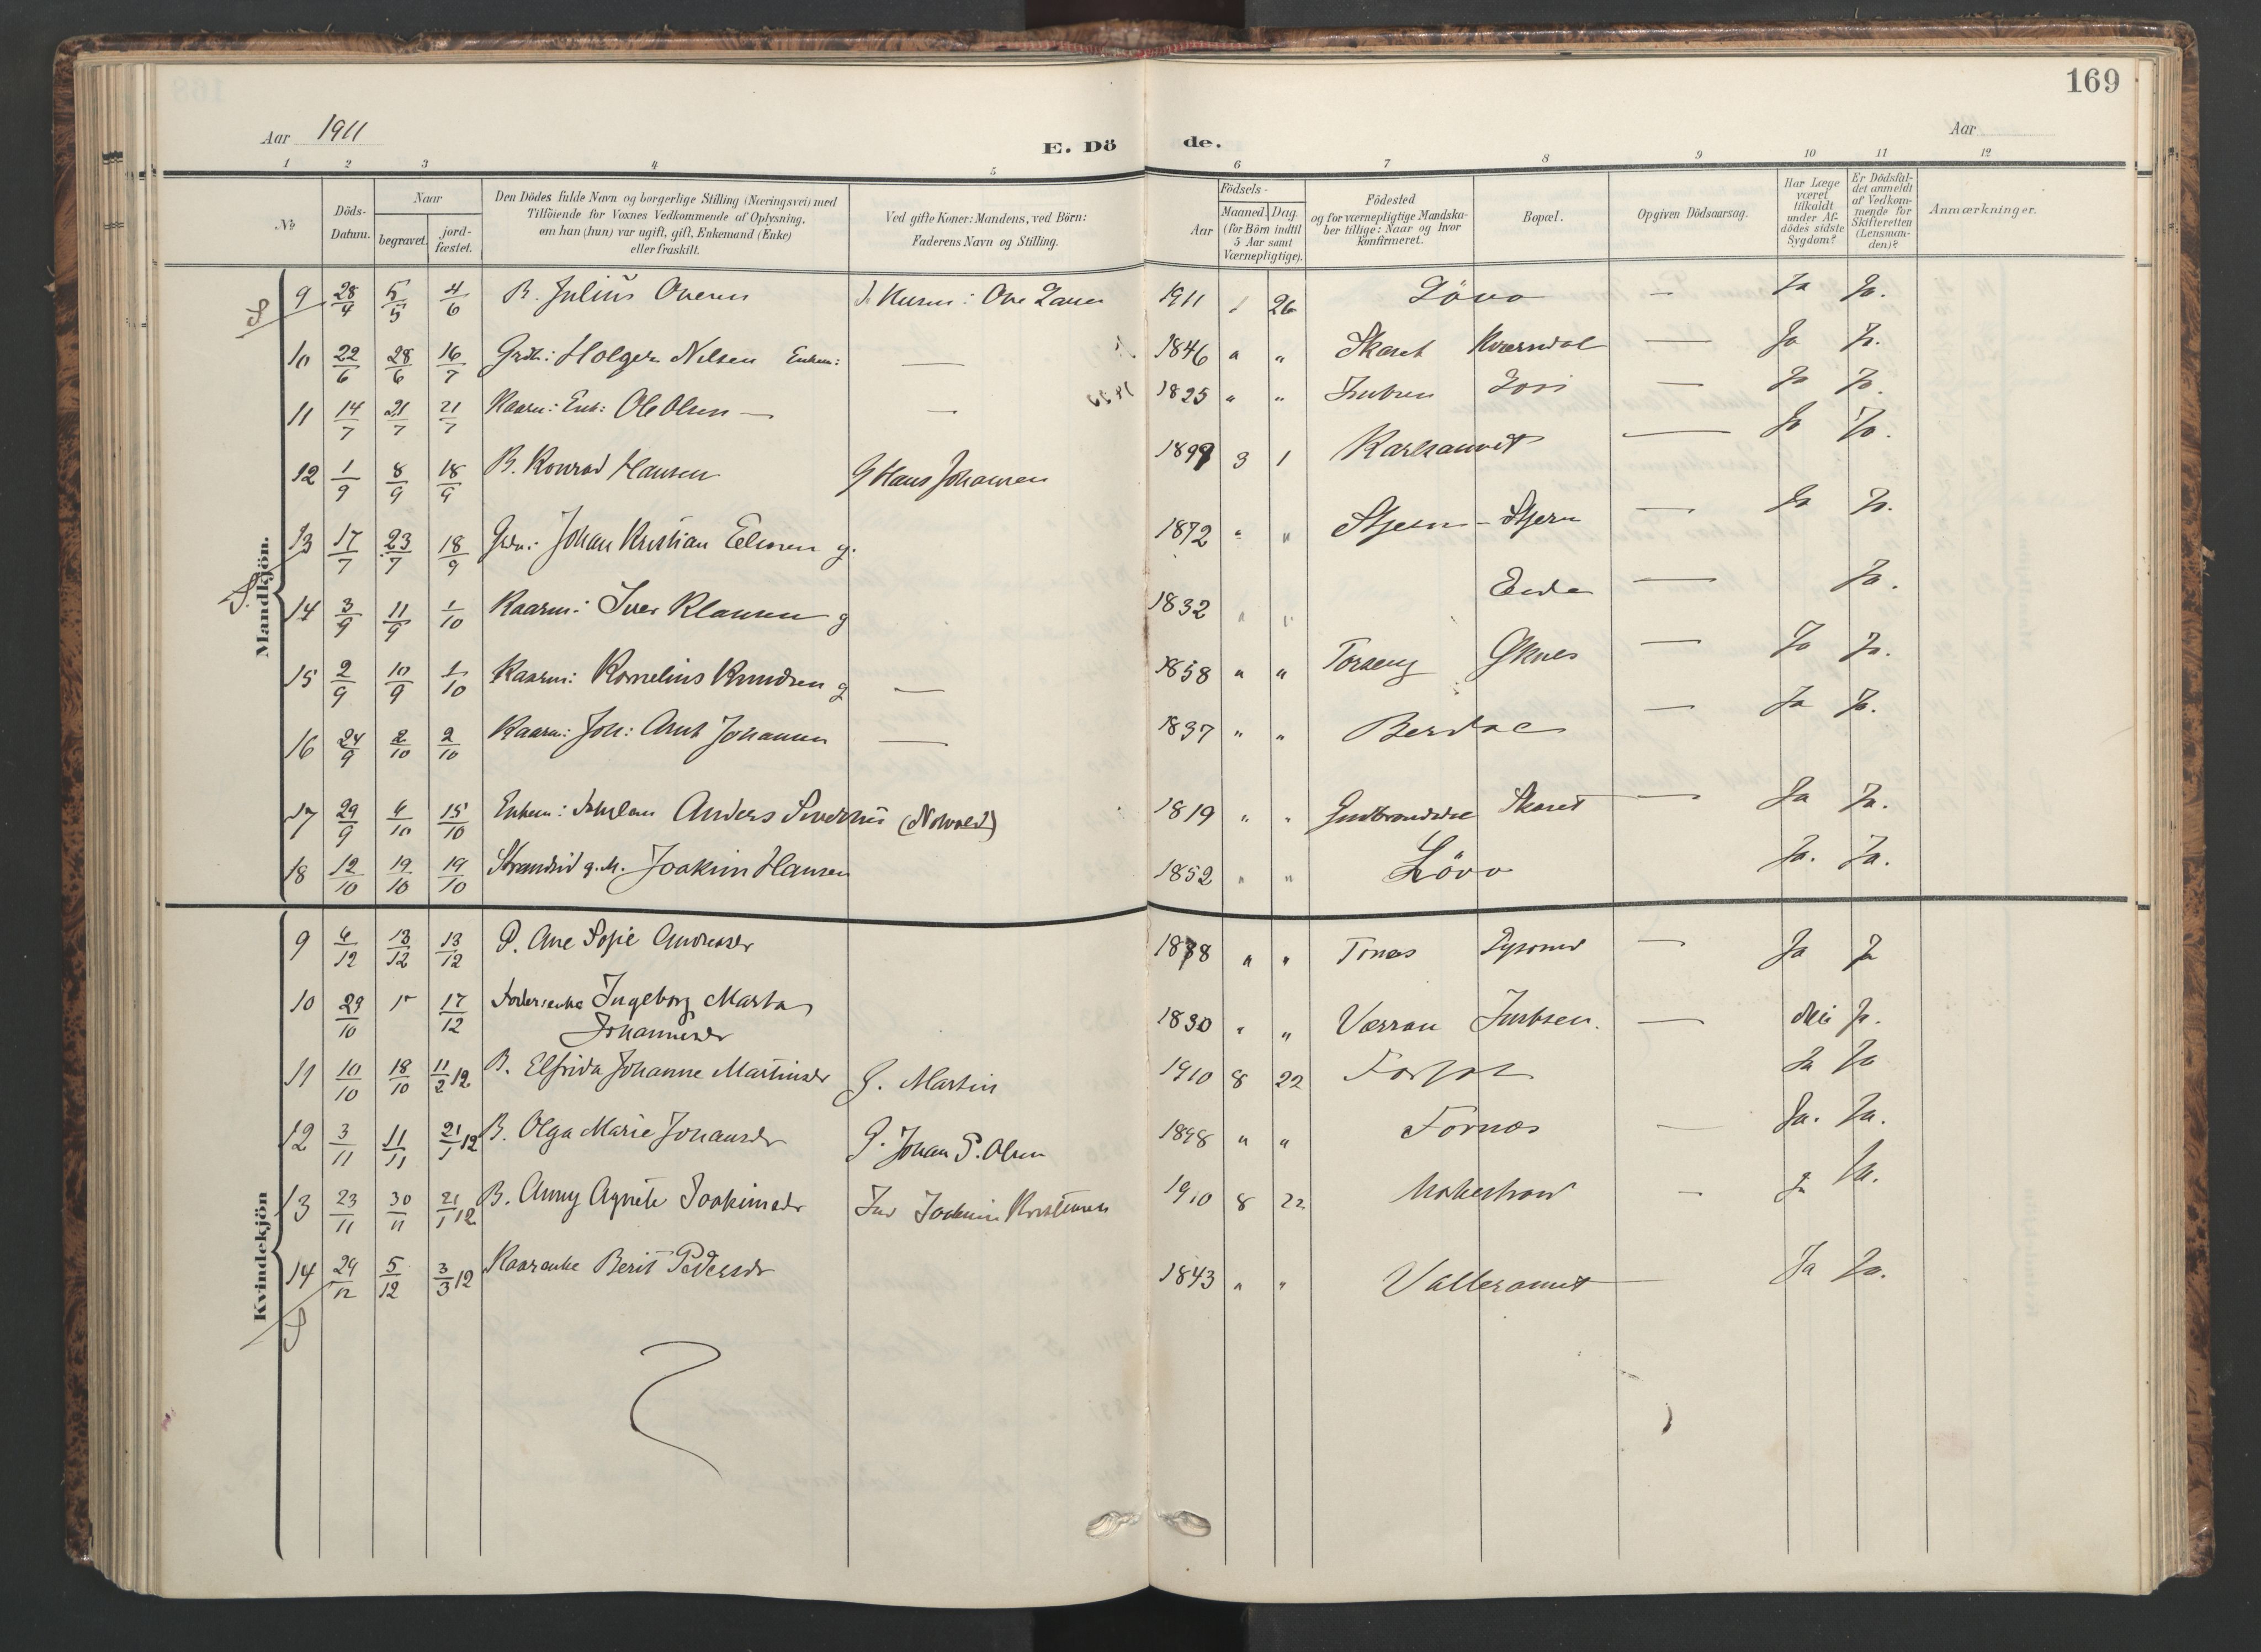 169
Aar 1911
E. Dö de.
Aar
1 2 3 4 5 6 7 8 9 10 11 12
№
Döds-Datum.
Naar
begravet.
jord-fæstet.
Den Dödes fulde Navn og borgerlige Stilling (Næringsvei) med
Tilföiende for Voxnes Vedkommende af Oplysning,
om han (hun) var ugift, gift, Enkemand (Enke)
eller fraskilt.
Ved gifte Koner: Mandens, ved Börn:
Faderens Navn og Stilling.
Födsels-
Aar
Maaned. Dag.
(for Börn indtil
5 Aar samt
Værnepligtige).
Födested
og for værnepligtige Mandska-
ber tillige: Naar og hvor
konfirmeret.
Bopæl.
Opgiven Dödsaarsag.
Har Læge
været
tilkaldt
under Af-
dödes sidste
Sygdom?
Er Dödsfal-
det anmeldt
af Vedkom-
mende for
Skifteretten
(Lensman-
den)?
Anmærkninger.
Mandkjön.
9 28/4 5/5 4/6 B. Julius Ovesen Ove 1911 26 Lövö — Ja Ja.
10 22/6 28/6 16/7 Grdb: Holger Nilsen Enkem: — 1846 " " Skaret Kværndal — Ja Ja.
11 14/7 21/7 21/7 Kaarm: Enk: Ole Olsen — — 1825 " " — Ja Ja.
12 1/9 8/9 18/9 B. Konrad Hansen G Hans Johansen 1899 3 1 — Ja Ja.
13 17/7 23/7 18/9 Johan Kristian g. 1872 " " Stjern - Stjern — Ja Ja.
14 3/9 11/9 1/10 Kaarm: Iver Klausen g 1832 " " — Ja.
15 2/9 10/9 1/10 Kaarm: Kornelius Knudsen g — 1858 " " Torseng Oknes — Ja Ja.
16 24/9 2/10 2/10 Kaarm: Joh: Arnt Johansen — 1837 " " Berdal — Ja Ja.
17 29/9 4/10 15/10 Enkem: Anders 1819 " " Skaret — Ja Ja.
18 12/10 19/10 19/10 Strandsid g. M. Joakim Hansen 1852 " " Lövö Ja. Ja.
Kvindekjön
9 6/12 13/12 13/12 P. Ane Sofie Andreasdr 18 8 " " — Ja Ja
10 29/10 17/12 Ingeborg Marta
Johannesdr 1830 " " Værran — Nei Ja.
11 10/10 18/10 11/2 12 B. Elfrida Johanne Martinsdr G. Martin 1910 8 22 Ja Ja
12 3/11 11/11 21/1 12 B. Olga Marie Johansdr G. Johan P. Olsen 1898 " " Fornes — Ja. Ja.
13 23/11 30/11 21/1 12 B. Anny Agnete Joakimsdr Ind Joakim Kristensen 1910 8 22 — Ja Ja.
14 29/12 5/12 3/3 12 Kaarenke Berit Pedersdr 1843 " " — Ja Ja.